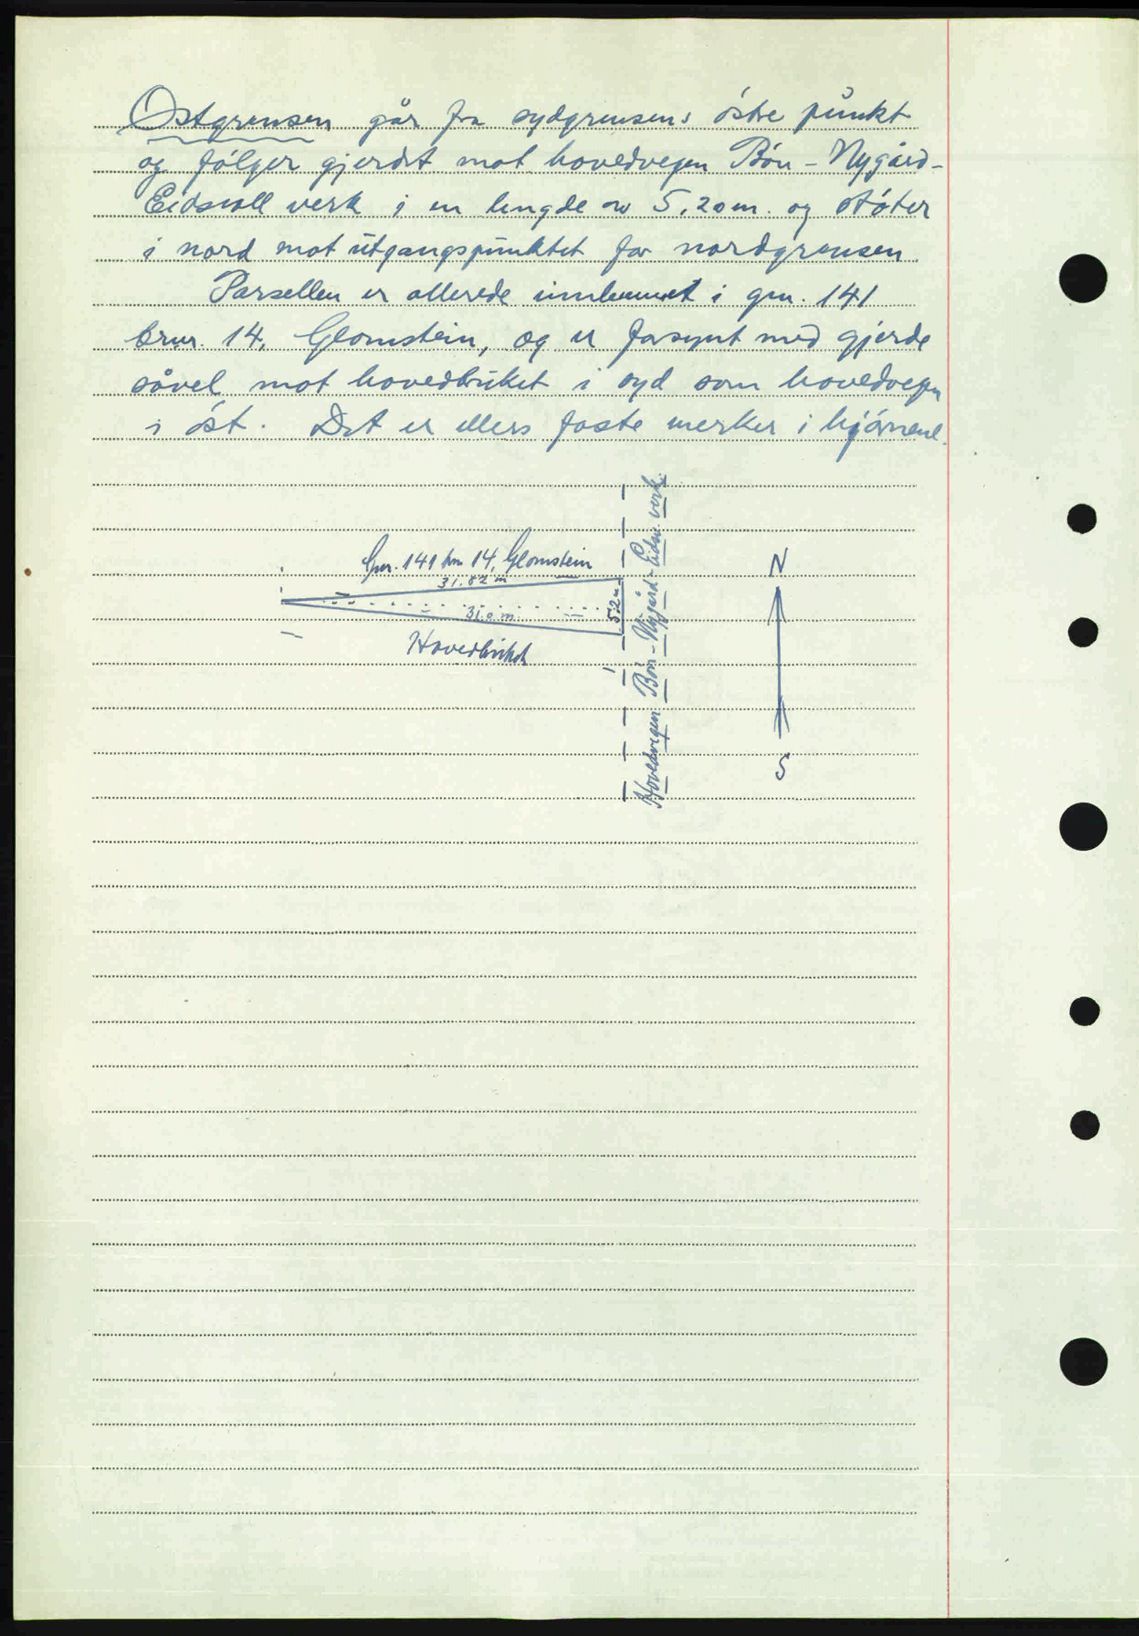 Østgrensen går fra sydgrensens østre punkt
og følger gjerdet mot hovedvegen Bøn - Nygård -
Eidsvoll verk i en lengde av 5,20 m. og støter
i nord mot utgangspunktet for nordgrensen.
Parsellen er allerede innhegnet i gnr. 141
brnr. 14, Glomstein, og er forsynt med gjerde
såvel mot hovedbruket i syd som hovedvegen
i øst. Det er ellers faste merker i hjørnene.
Gnr. 141 bnr 14, Glomstein
31.82 m
31.0 m
5.2 m
Hovedbruket
Hovedvegen Bøn - Nygård - Eidsv. verk.
N
S